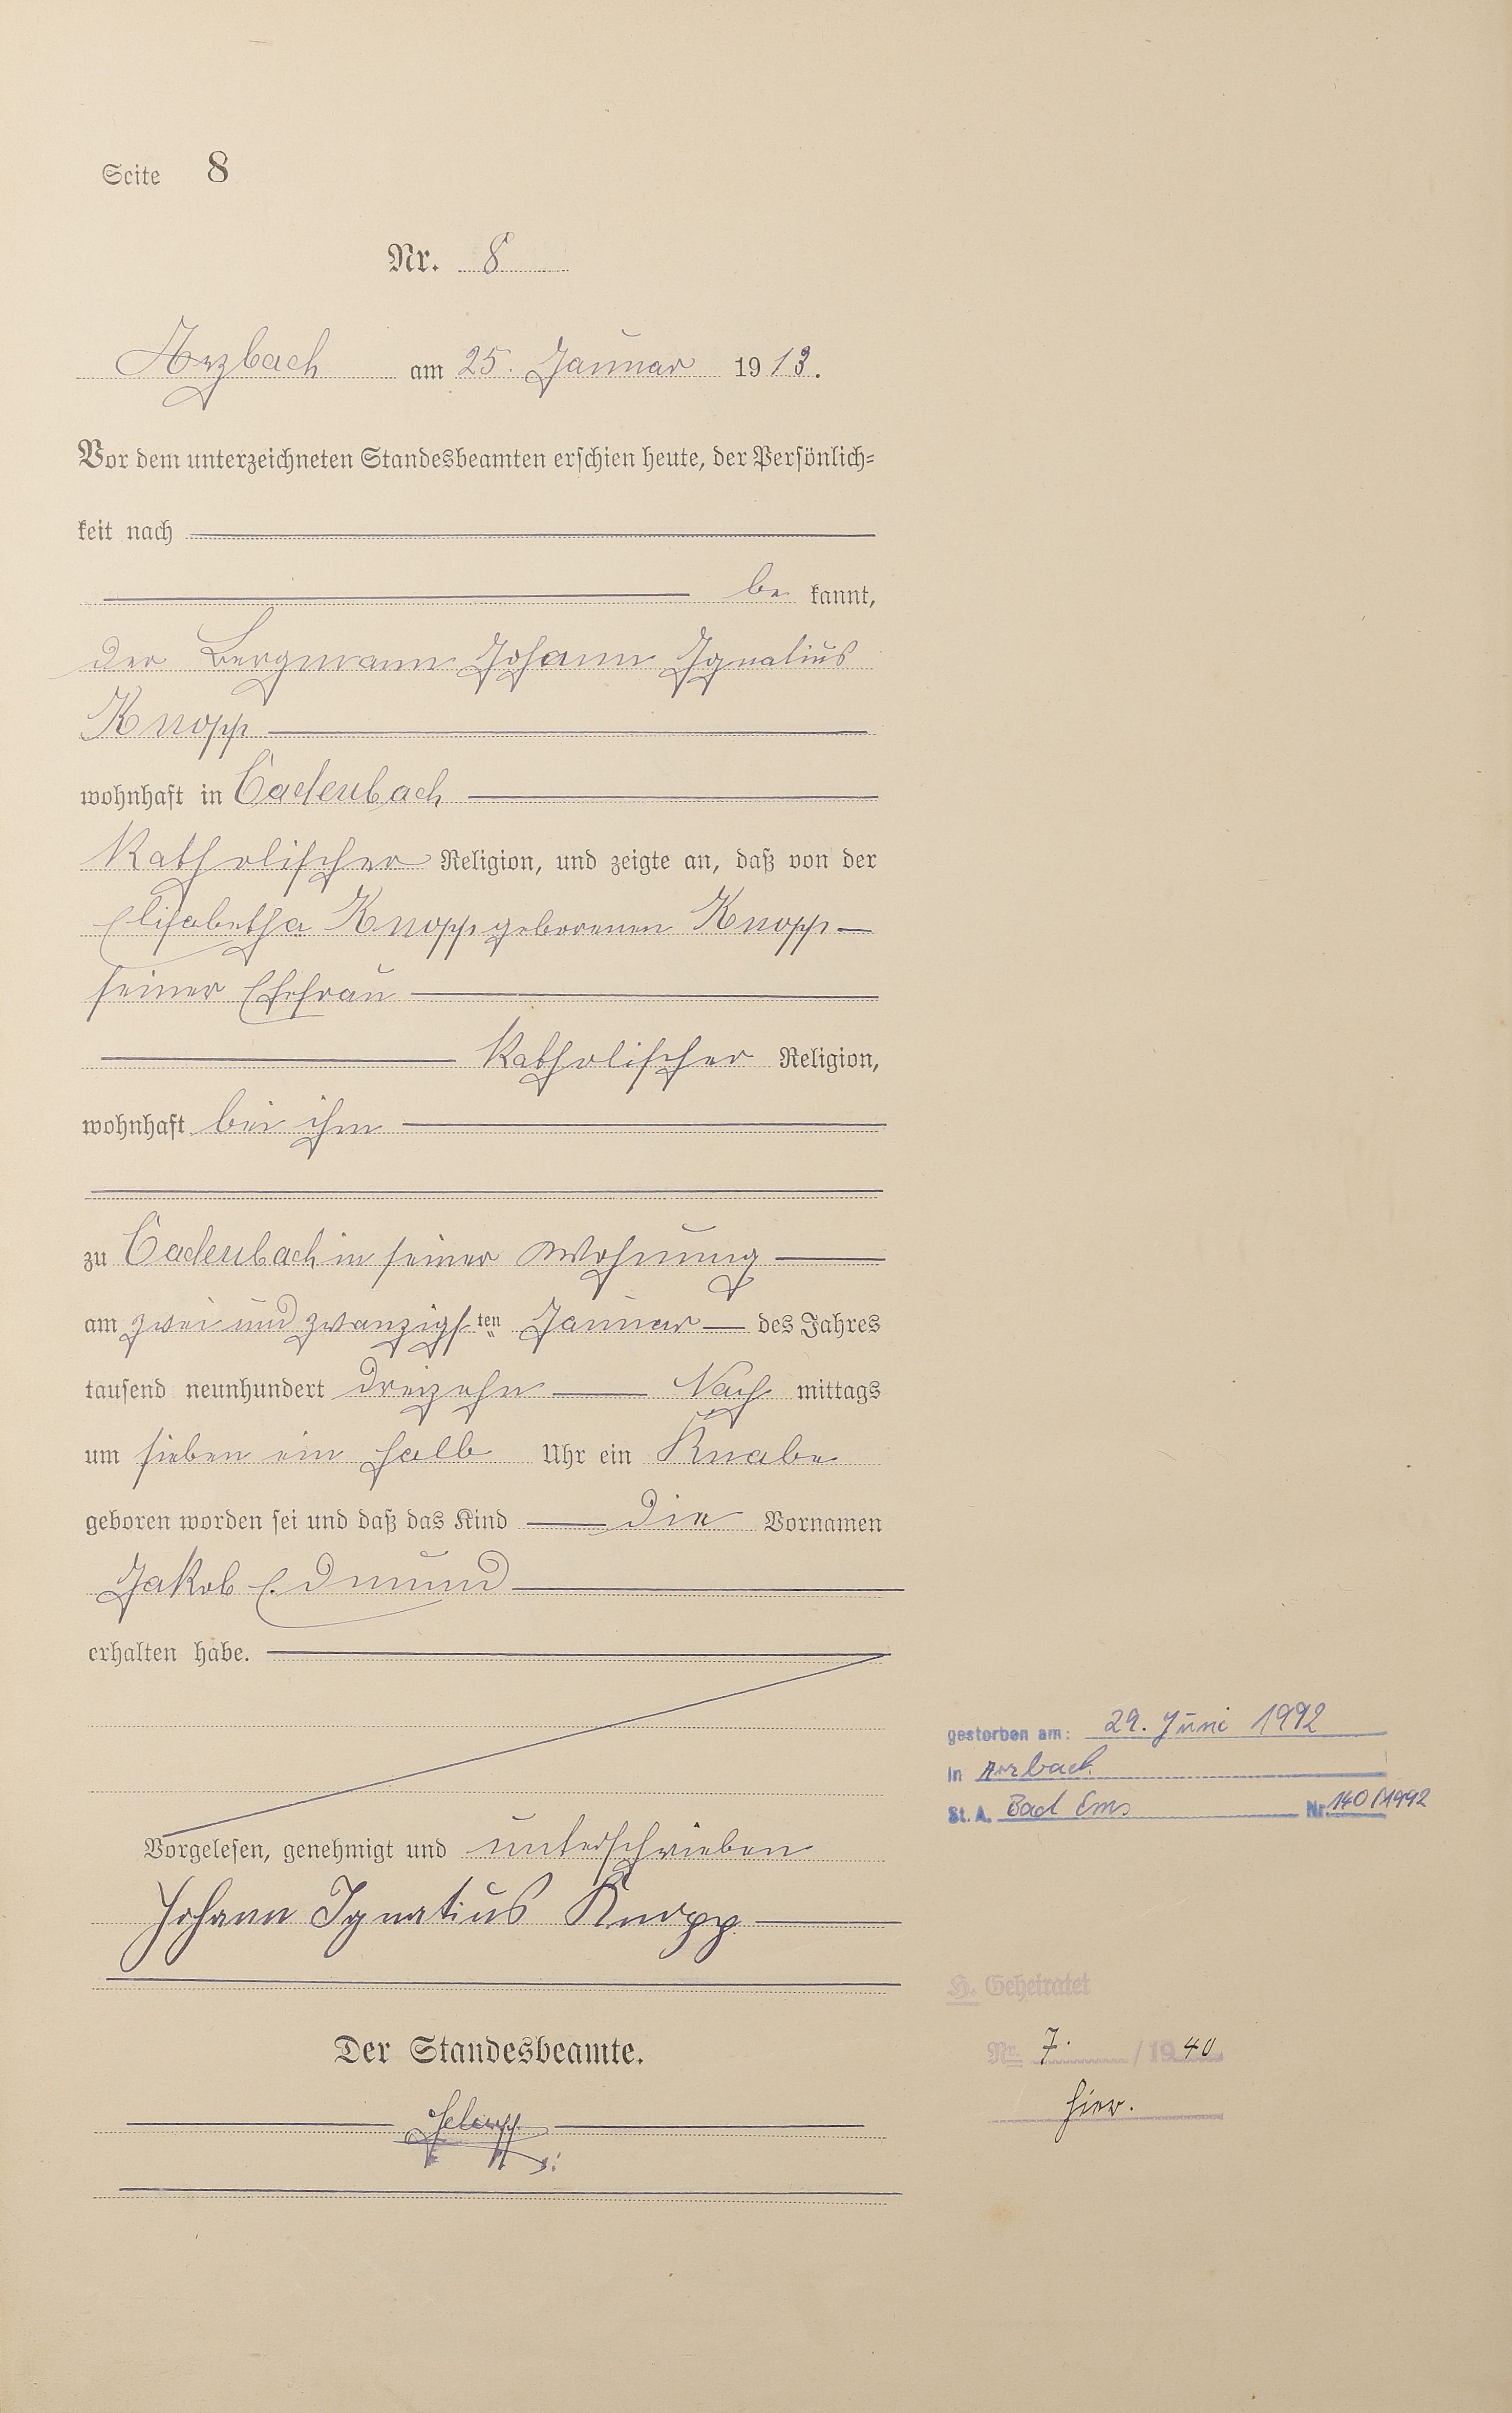 Seite 8
Nr. 8
Arzbach am 25. Januar 1913.
Vor dem unterzeichneten Standesbeamten erschien heute, der Persönlich-
keit nach
be kannt,
der Bergmann Johann Ignatius
Knopp
wohnhaft in Cadenbach
katholischer Religion, und zeigte an, daß von der
Elisabetha Knopp geborenen Knopp
seiner Ehefrau
katholischer Religion,
wohnhaft bei ihm
zu Cadenbach in seiner Wohnung
am zwei und zwanzigsten Januar des Jahres
tausend neunhundert dreizehn Nach mittags
um sieben ein halb Uhr ein Knabe
geboren worden sei und daß das Kind die Vornamen
Jakob Edmund
erhalten habe.
Vorgelesen, genehmigt und unterschrieben
Johann Ignatius Knopp
Der Standesbeamte.
gestorben am: 29. Juni 1992
in Arzbach
St. A. Bad Ems Nr. 140/1992
H. Geheiratet
Nr. 7. / 1940
hier.